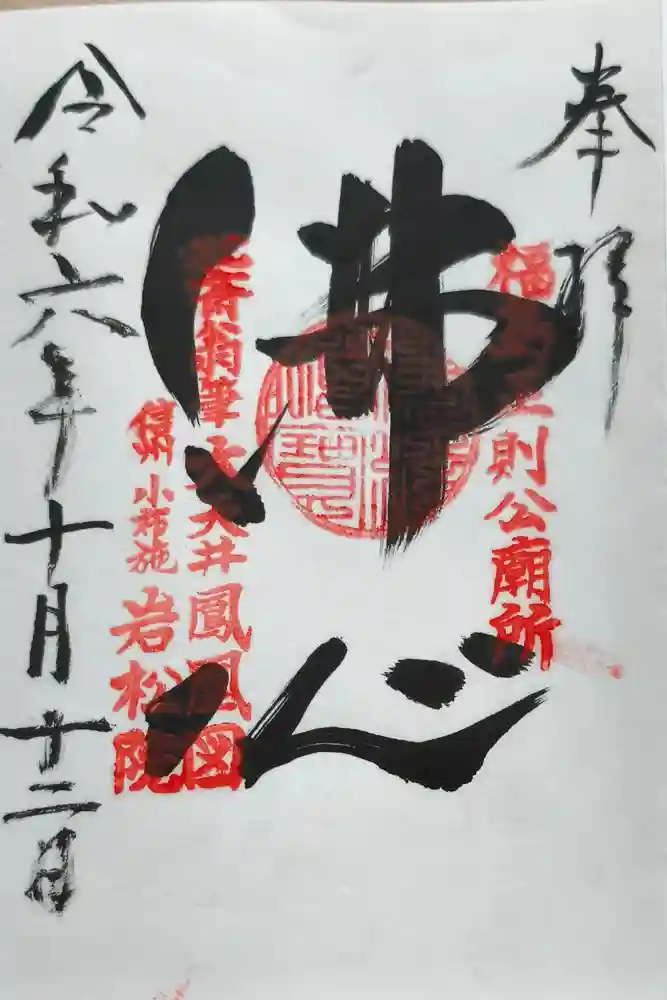 奉拝
福島正則公廟所
佛心
卍翁筆大天井鳳凰図
信州小布施
岩松院
令和六年十月十二日